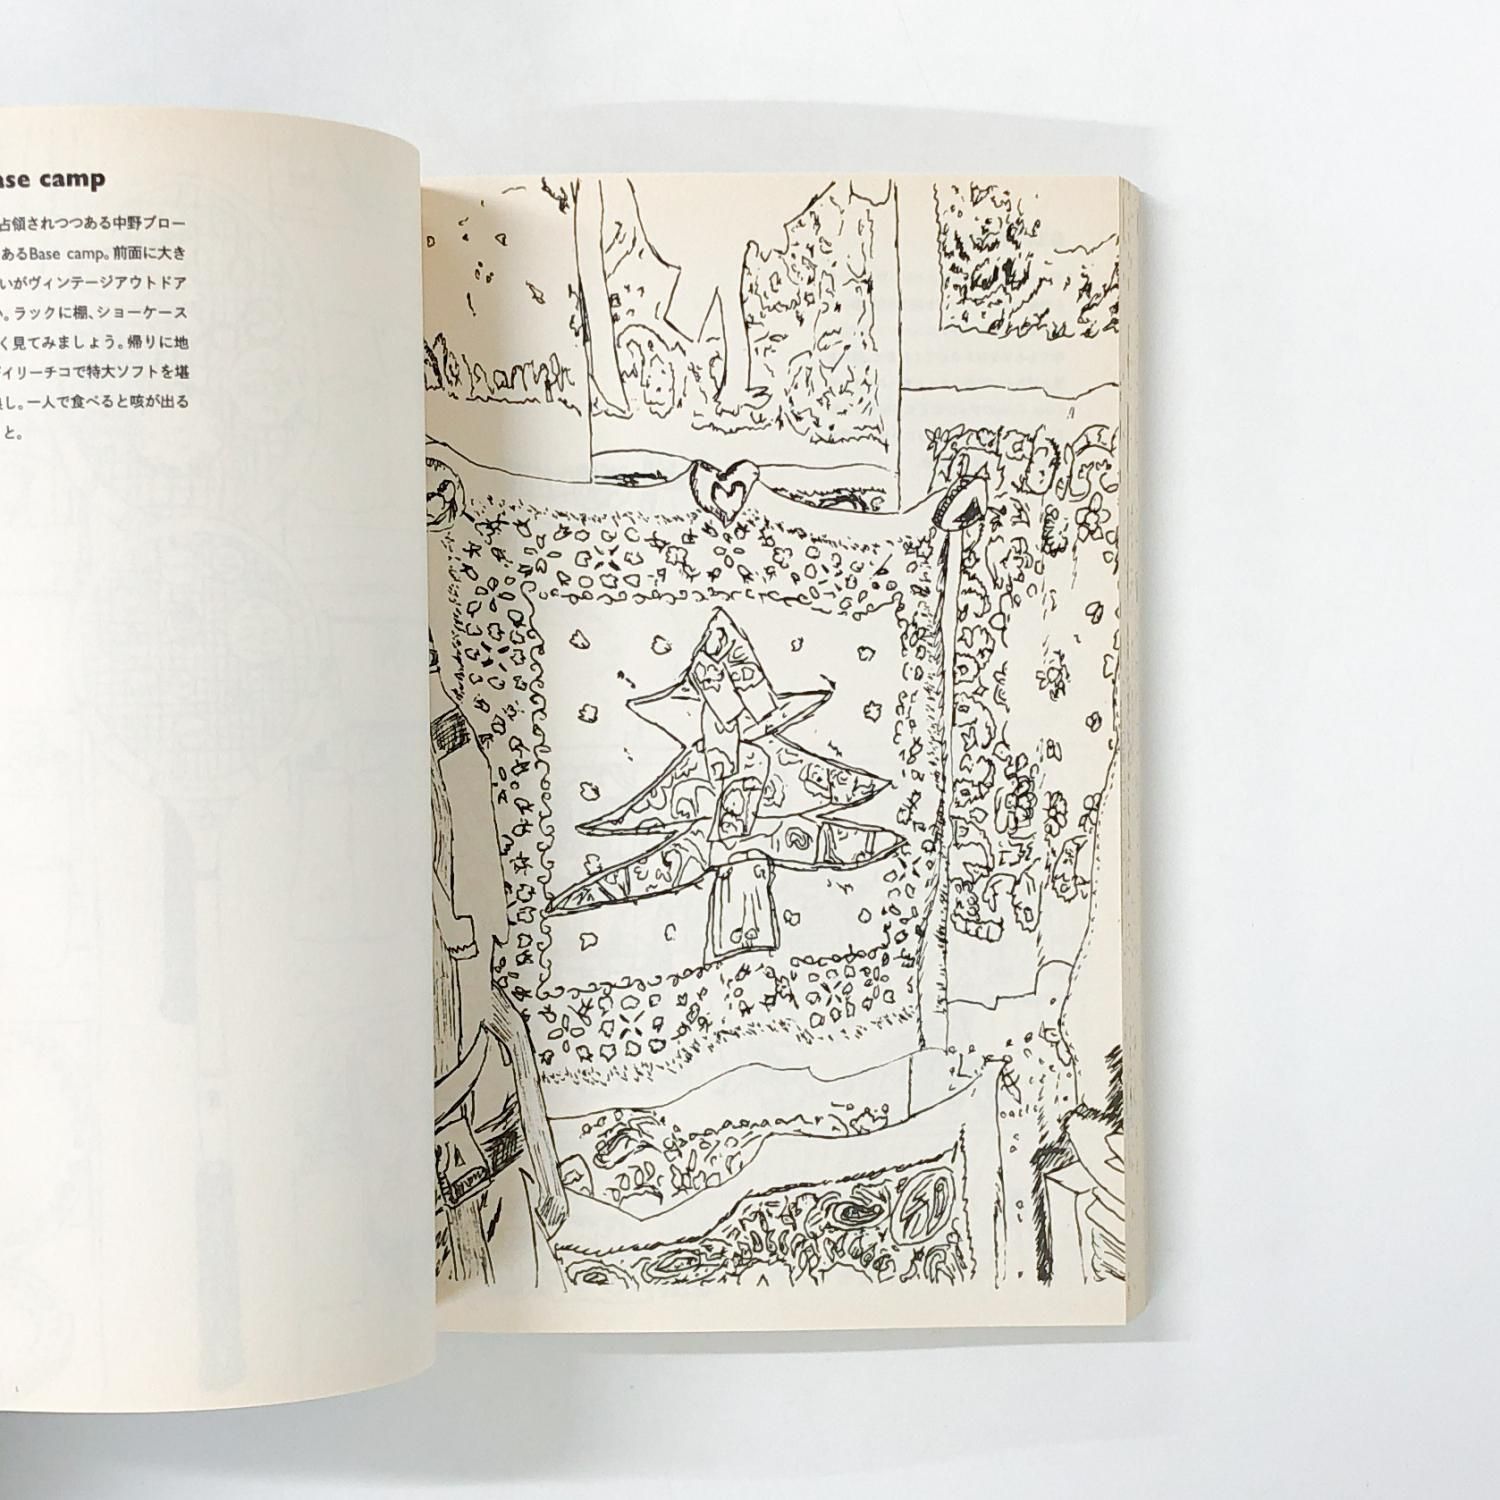 ase camp
占領されつつある中野ブロー
あるBase camp。前面に大き
いがヴィンテージアウトドア
い。ラックに棚、ショーケース
く見てみましょう。帰りに地
ィリーチコで特大ソフトを堪
し。一人で食べると咳が出る
と。